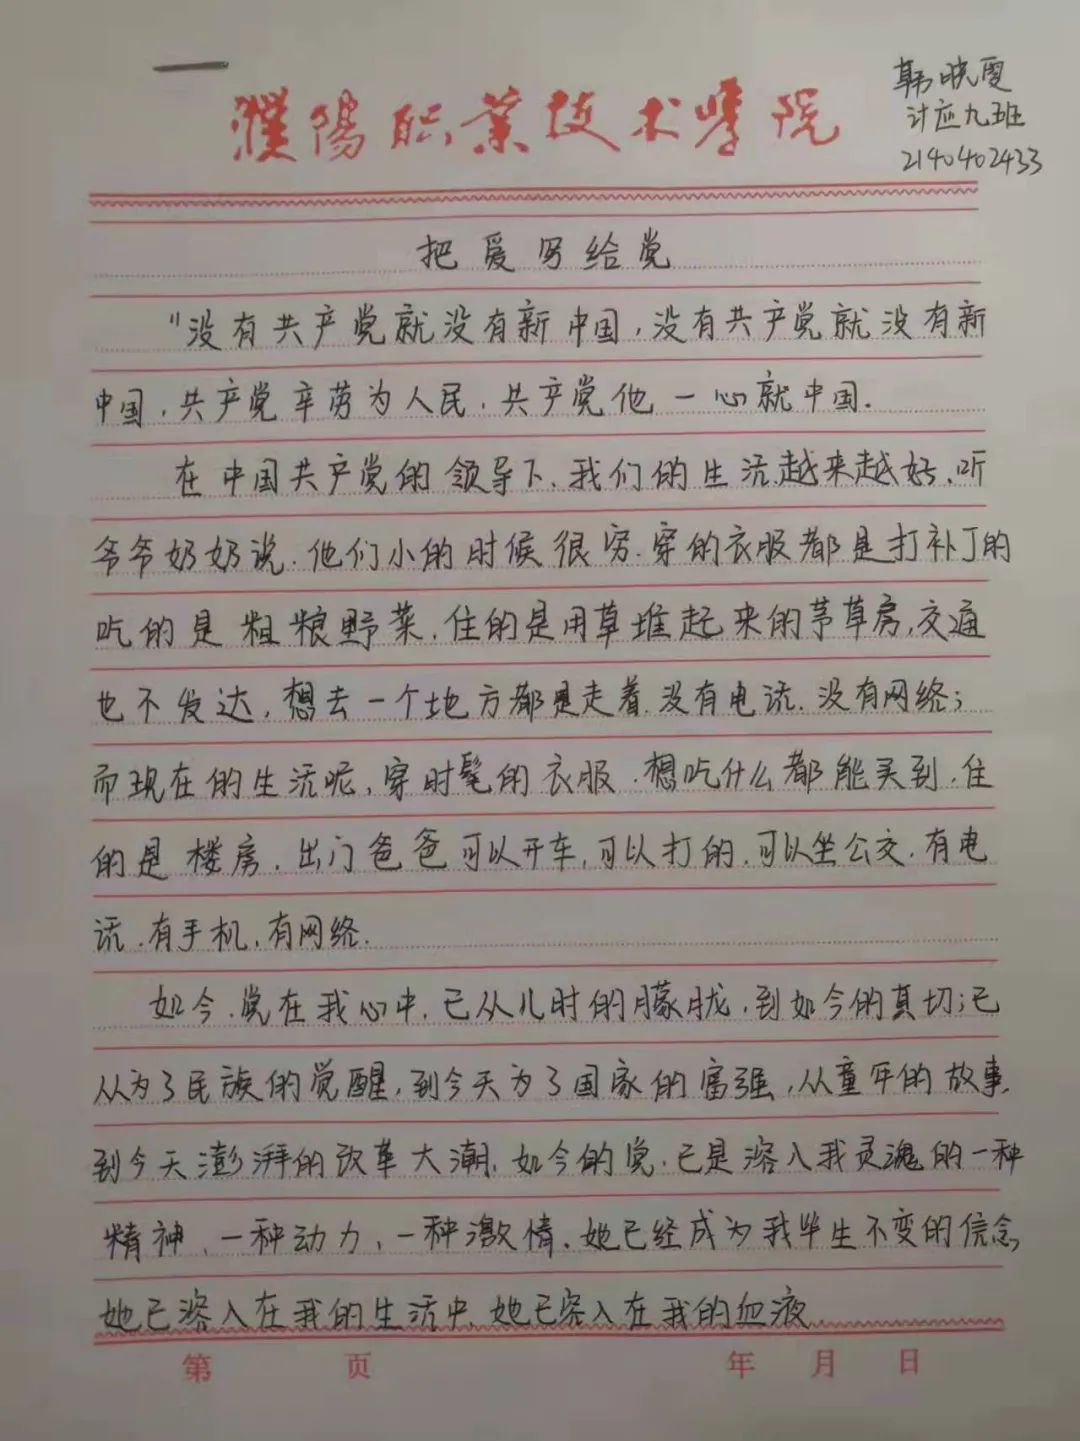 濮陽职業技术学院
韩晓夏
计应九班
2140402433
把爱写给党
"没有共产党就没有新中国,没有共产党就没有新
中国,共产党辛劳为人民,共产党他一心就中国.
在中国共产党的领导下,我们的生活越来越好,听
爷爷奶奶说.他们小的时候很穷.穿的衣服都是打补丁的
吃的是粗粮野菜,住的是用草堆起来的茅草房,交通
也不发达,想去一个地方都是走着.没有电话.没有网络;
而现在的生活呢,穿时髦的衣服.想吃什么都能买到.住
的是楼房.出门爸爸可以开车,可以打的,可以坐公交.有电
话.有手机,有网络.
如今.党在我心中,已从儿时的朦胧,到如今的真切;已
从为了民族的觉醒,到今天为了国家的富强,从童年的故事,
到今天澎湃的改革大潮,如今的党,已是溶入我灵魂的一种
精神、一种动力、一种激情.她已经成为我毕生不变的信念
她已溶入在我的生活中,她已溶入在我的血液.
第 页 年 月 日